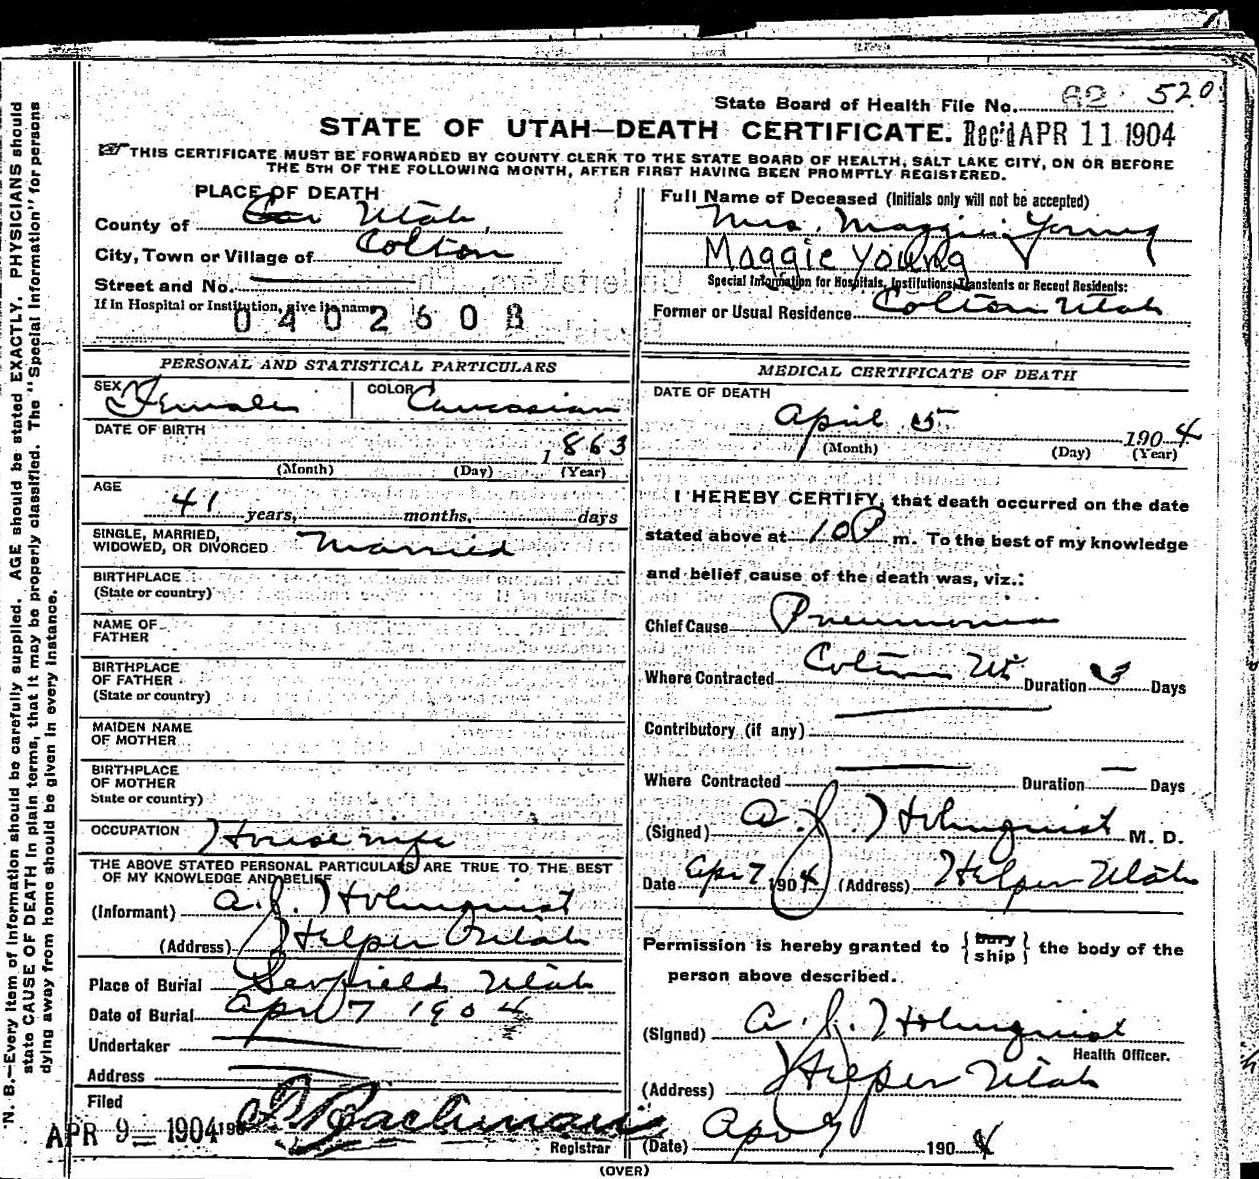 State Board of Health File No. 62 520
STATE OF UTAH—DEATH CERTIFICATE. Rec'd APR 11 1904
THIS CERTIFICATE MUST BE FORWARDED BY COUNTY CLERK TO THE STATE BOARD OF HEALTH, SALT LAKE CITY, ON OR BEFORE
THE 5TH OF THE FOLLOWING MONTH, AFTER FIRST HAVING BEEN PROMPTLY REGISTERED.
PLACE OF DEATH
County of Utah
City, Town or Village of Colton
Street and No.
If in Hospital or Institution, give its name
0402608
Full Name of Deceased (Initials only will not be accepted)
Mrs. Maggie Young
Maggie Young
Special Information for Hospitals, Institutions, Transients or Recent Residents:
Former or Usual Residence Colton Utah
PERSONAL AND STATISTICAL PARTICULARS
SEX Female COLOR Caucasian
DATE OF BIRTH
1863
(Month) (Day) (Year)
AGE
41 years, months, days
SINGLE, MARRIED,
WIDOWED, OR DIVORCED Married
BIRTHPLACE
(State or country)
NAME OF
FATHER
BIRTHPLACE
OF FATHER
(State or country)
MAIDEN NAME
OF MOTHER
BIRTHPLACE
OF MOTHER
State or country)
OCCUPATION Housewife
THE ABOVE STATED PERSONAL PARTICULARS ARE TRUE TO THE BEST
OF MY KNOWLEDGE AND BELIEF
(Informant) A. J. Holmquist
(Address) Helper Utah
Place of Burial Utah
Date of Burial Apr 7 1904
Undertaker
Address
Filed
APR 9 1904 190
Registrar
MEDICAL CERTIFICATE OF DEATH
DATE OF DEATH
April 5 1904
(Month) (Day) (Year)
I HEREBY CERTIFY, that death occurred on the date
stated above at 10 P m. To the best of my knowledge
and belief cause of the death was, viz.:
Chief Cause Pneumonia
Where Contracted Colton Ut Duration 3 Days
Contributory (if any)
Where Contracted Duration — Days
(Signed) A. J. Holmquist M. D.
Date Apr 7 1904 (Address) Helper Utah
Permission is hereby granted to {bury ship} the body of the
person above described.
(Signed) A. J. Holmquist
Health Officer.
(Address) Helper Utah
(Date) Apr 7 1904
(OVER)
N. B.—Every item of information should be carefully supplied. AGE should be stated EXACTLY. PHYSICIANS should
state CAUSE OF DEATH in plain terms, that it may be properly classified. The "Special Information" for persons
dying away from home should be given in every instance.